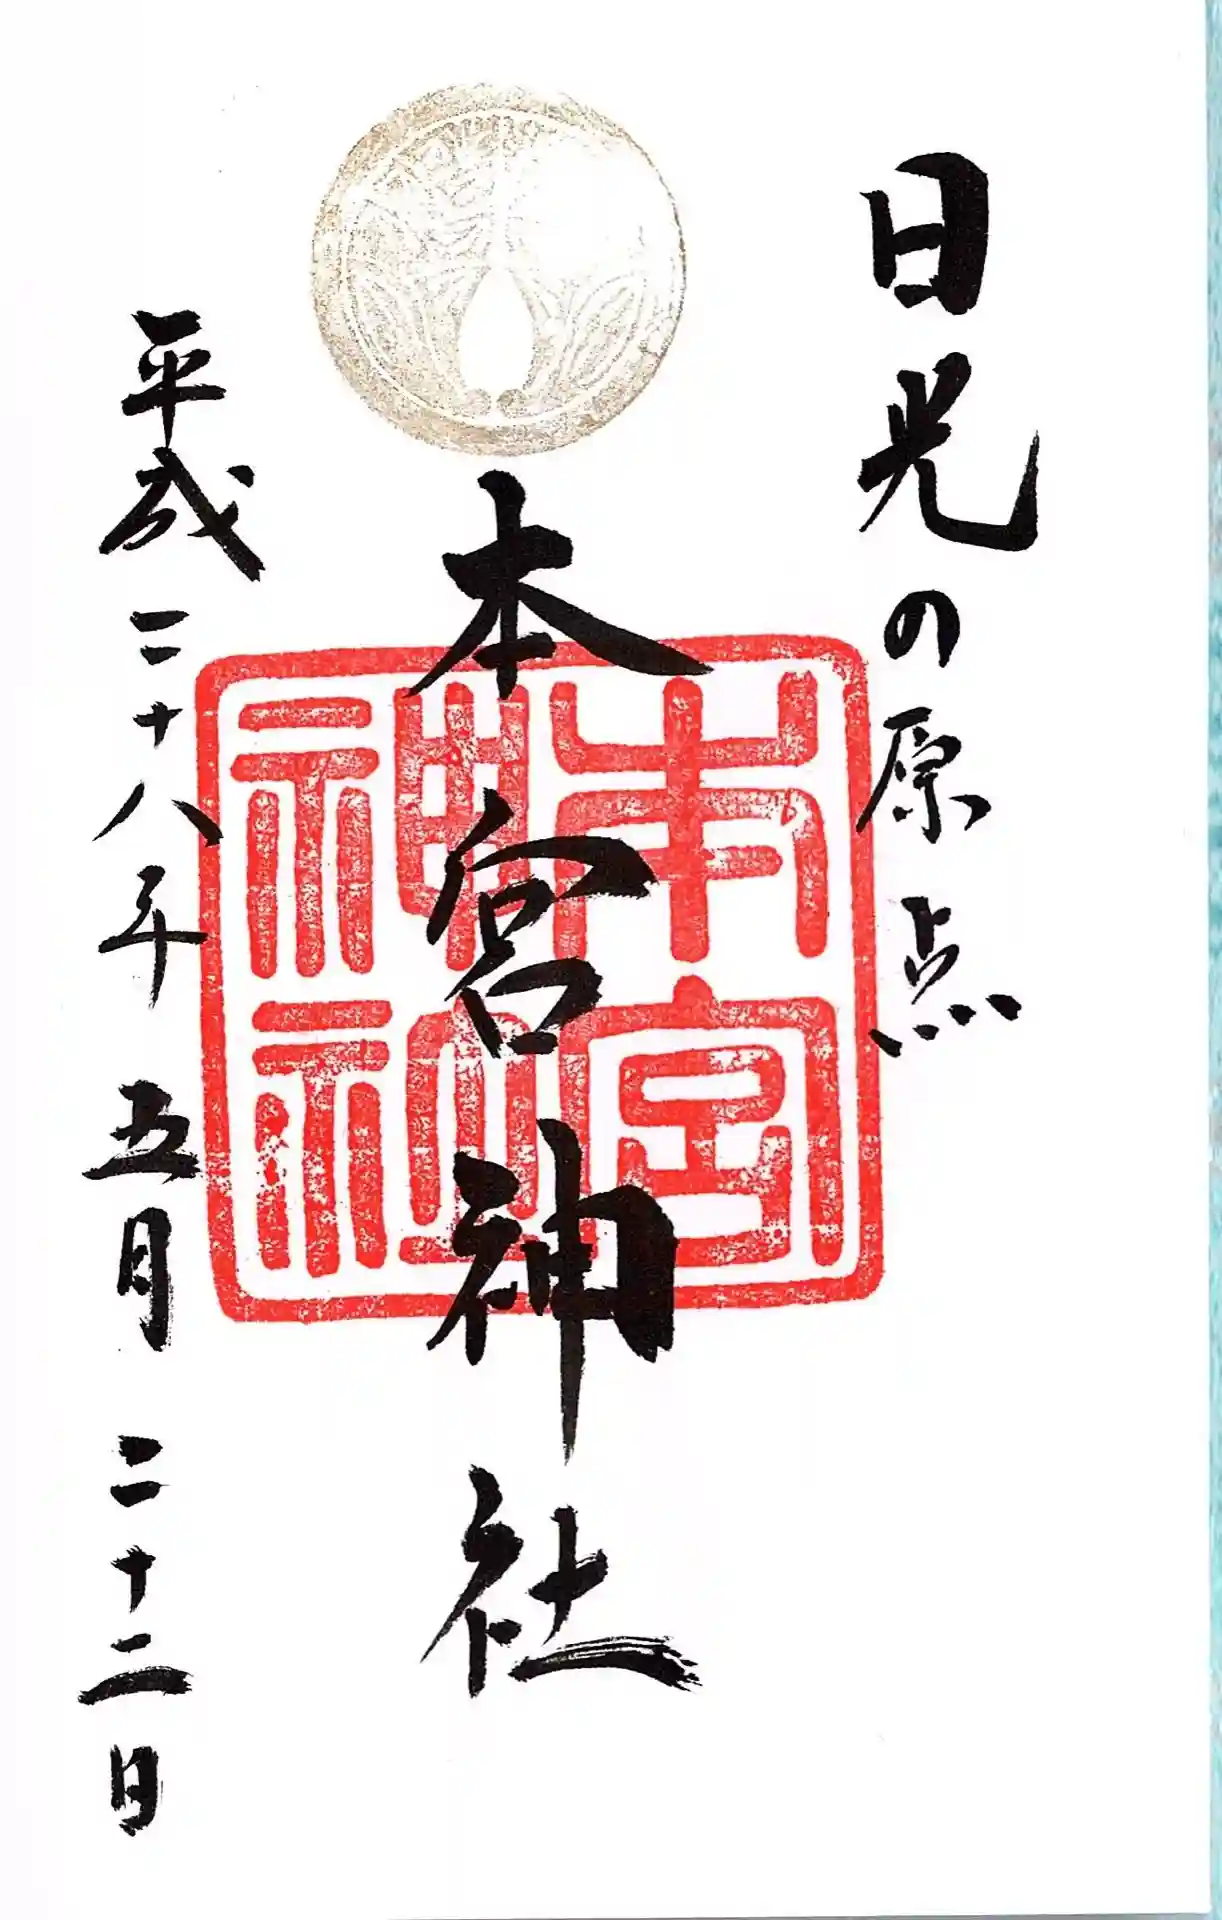 日光の原点
本宮神社
本宮神社
平成二十八年五月二十二日